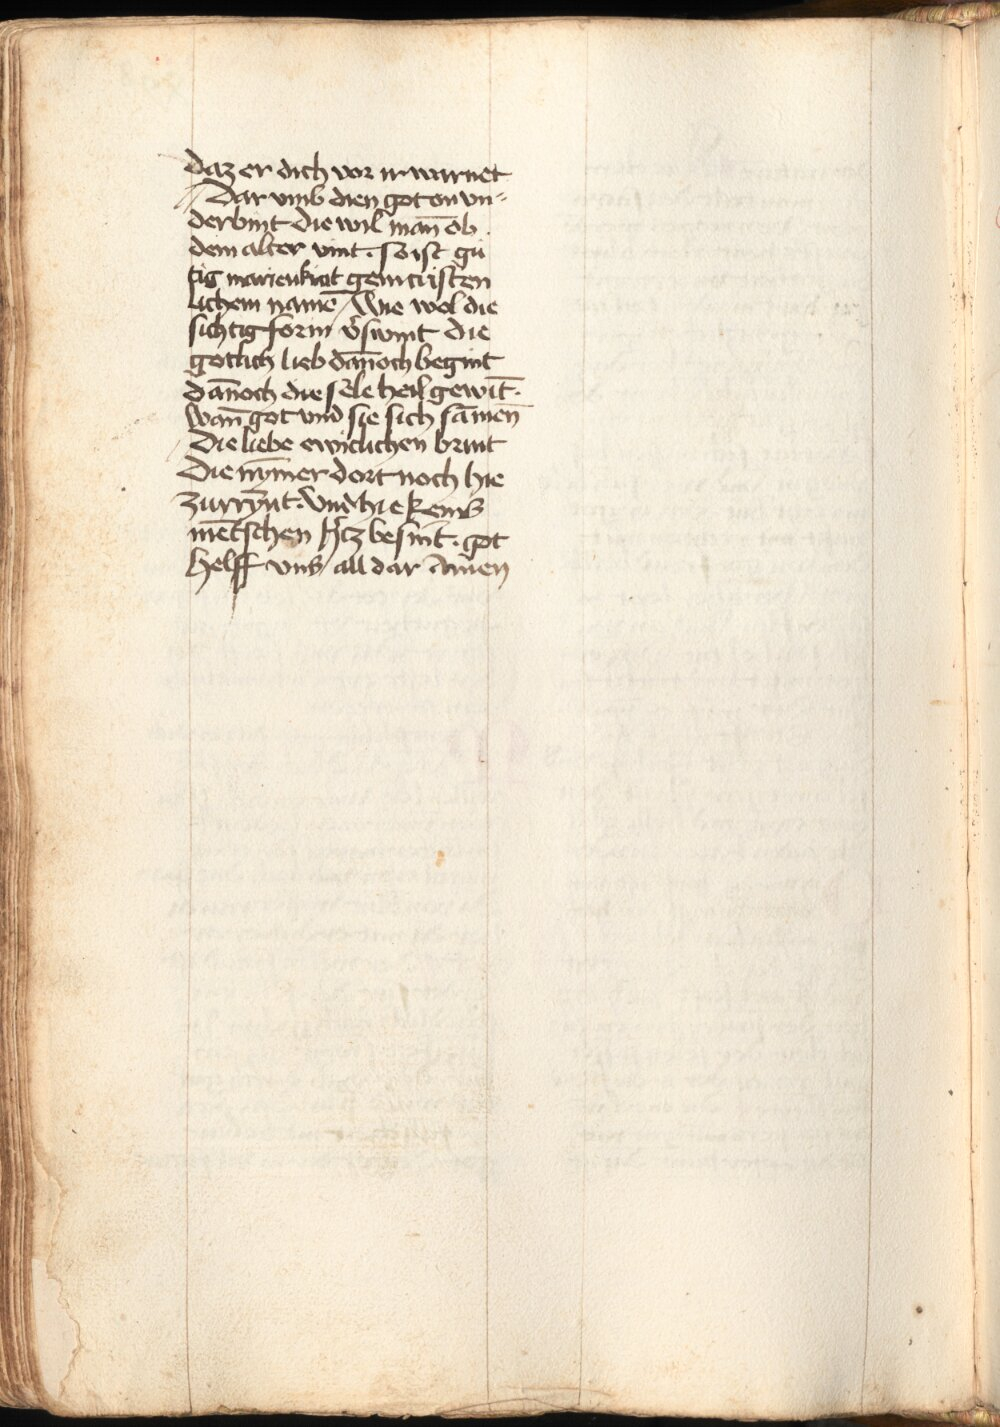 daz er dich vor ir warnet
Dar vmb dien got on vn⸗
derbint die wil man̄ ob
dem alter vint . so ist gü
tig marien kint gein cristen
lichem namē / Wie wol die
sichtig form v̓swint die
gotlich lieb dan̄och begint
dan̄och die sele heil gewīt .
Wan̄ got vnd sie sich sāmen
Die liebe ewiclichen brint
Die nȳmer dort noch hie
zurrȳnt . Vnd hie keins
mētschen h̓tz besīnt . got
helff vns all dar Amen